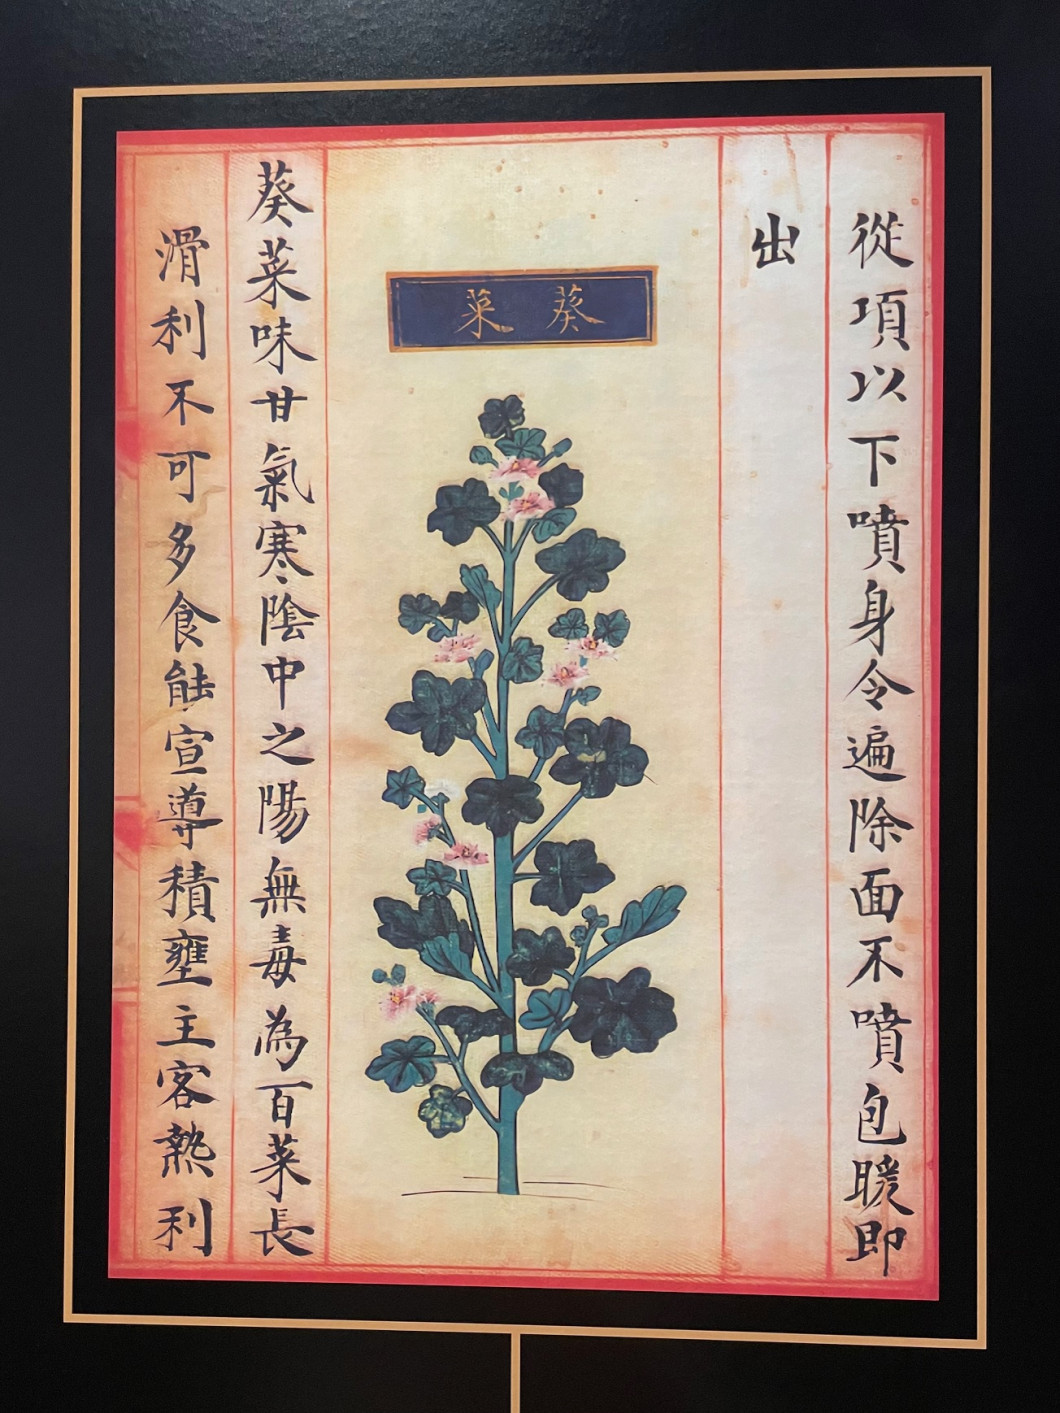 從項以下噴身令遍除面不噴包暖即
出
葵菜
葵菜味甘氣寒陰中之陽無毒為百菜長
滑利不可多食能宣導積壅主客熱利